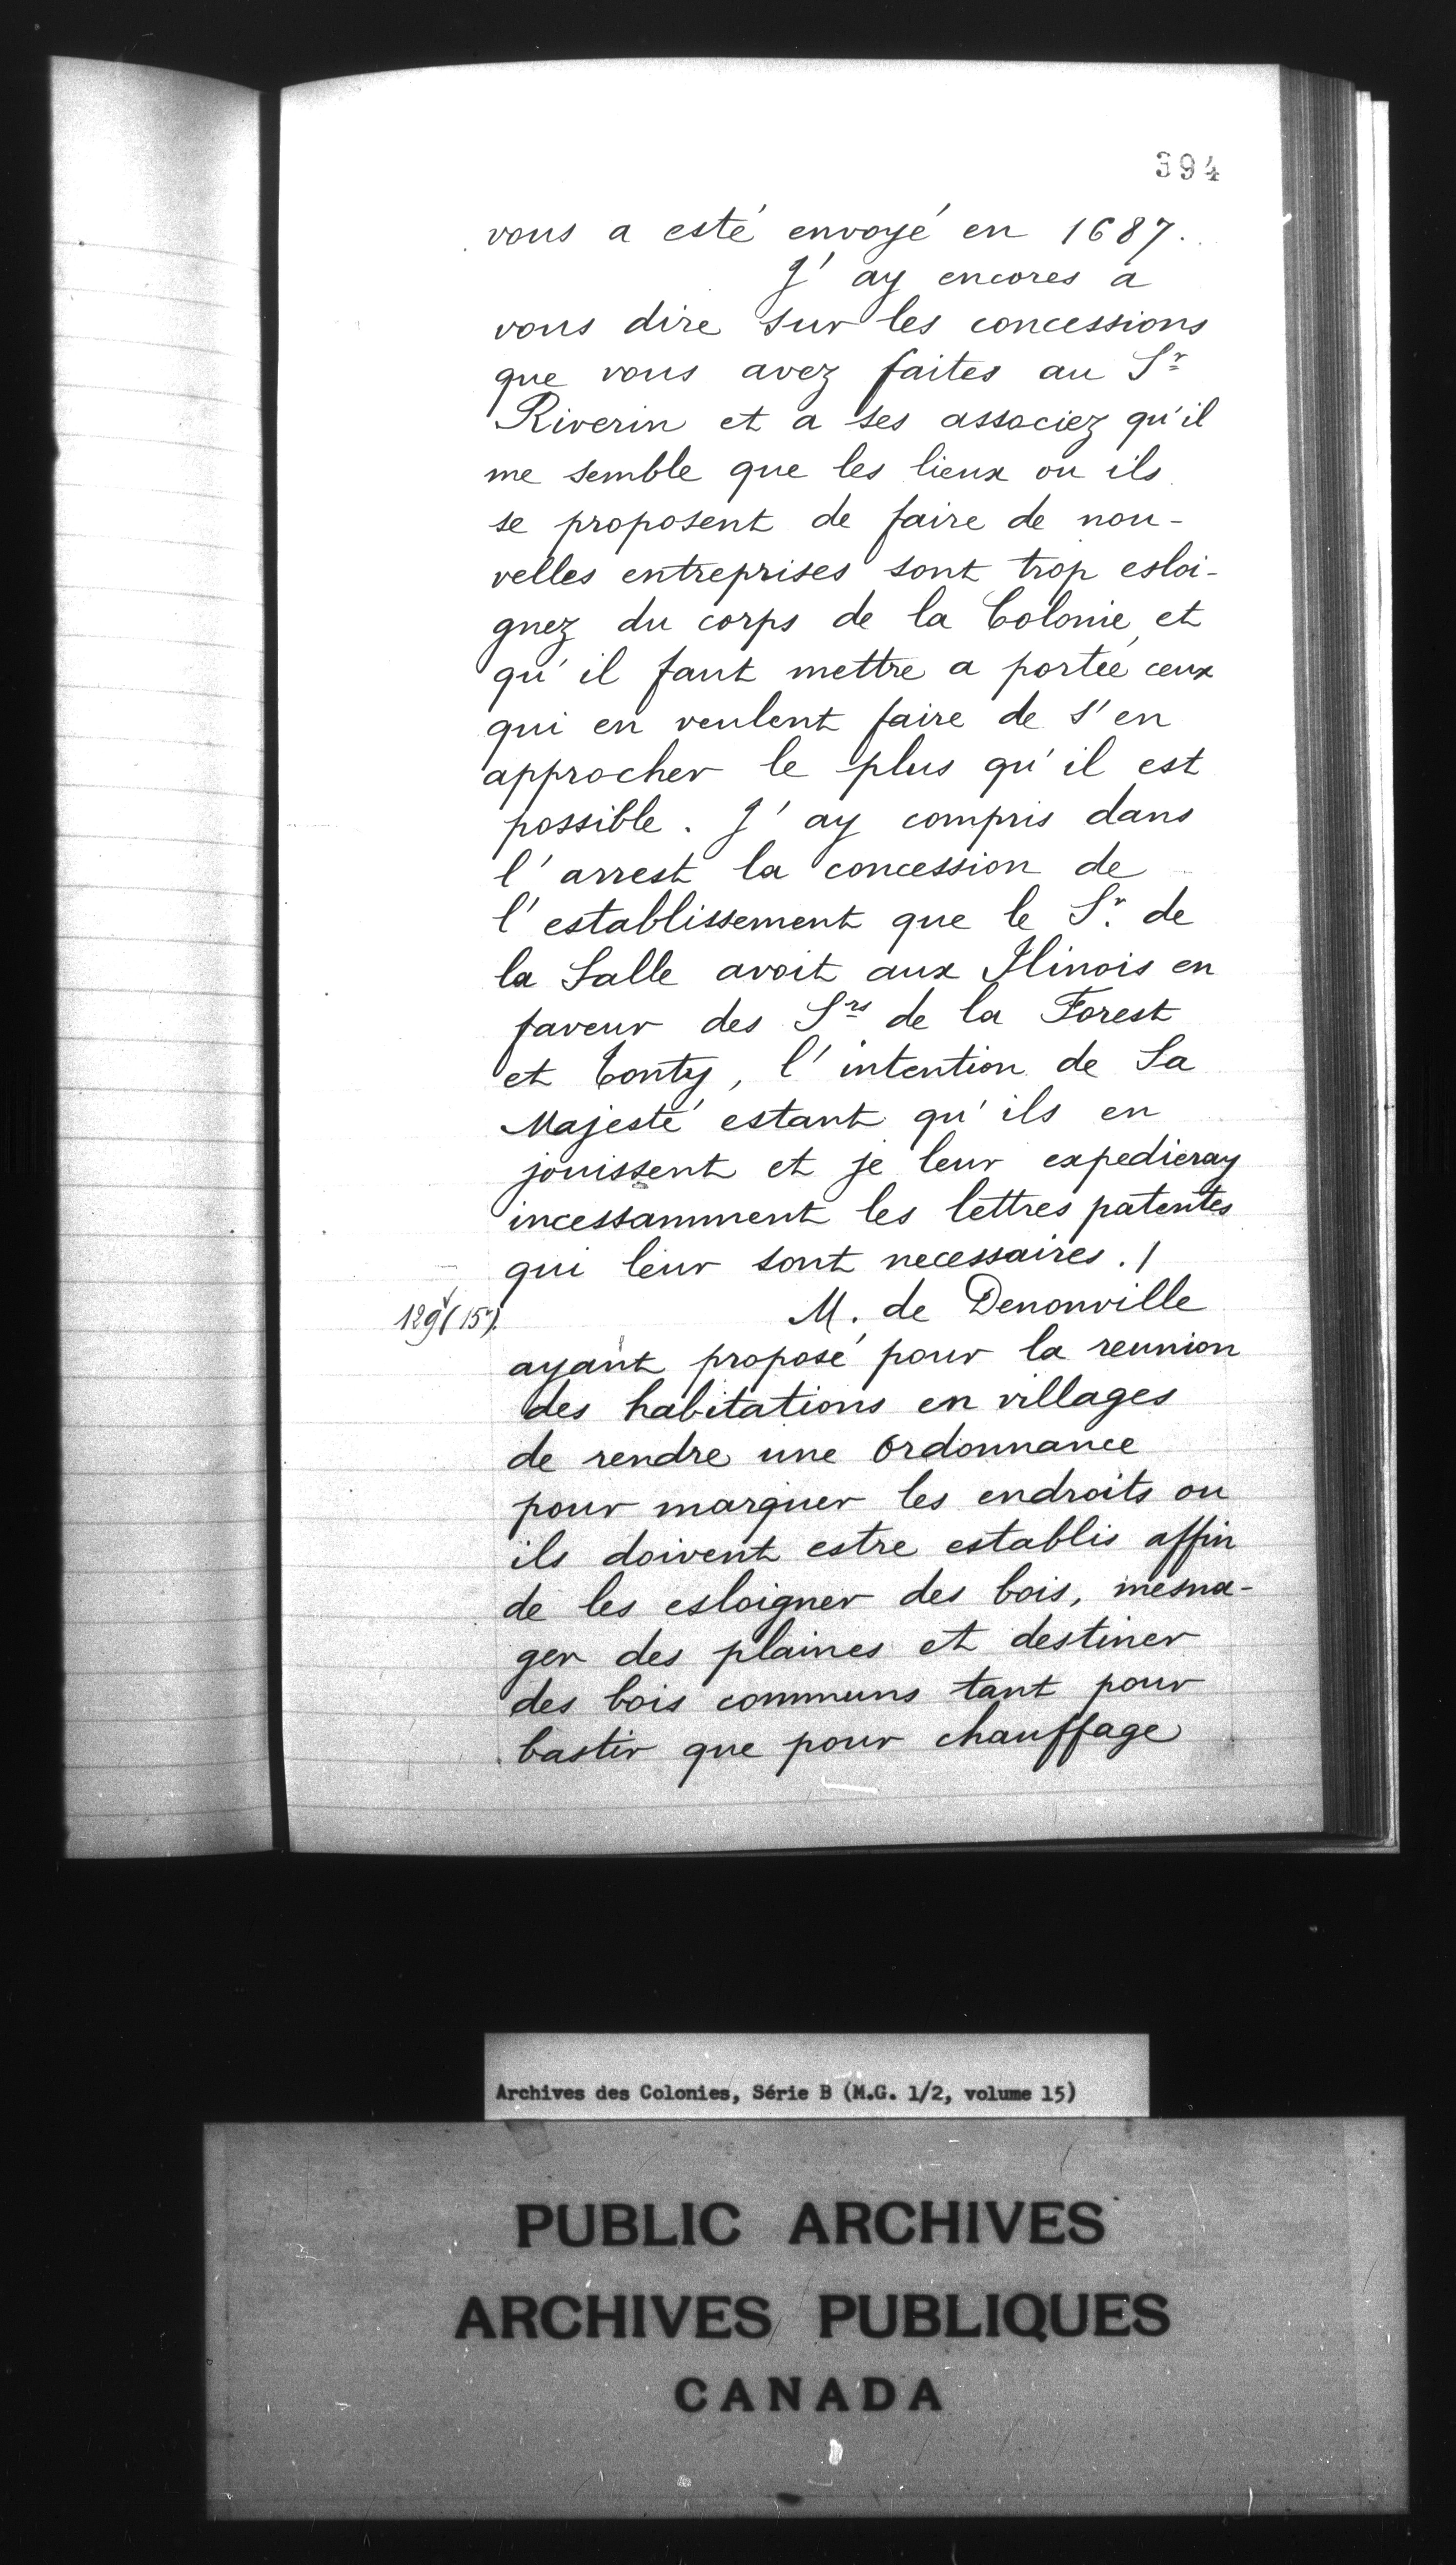 394
vous a esté envoyé en 1687.
J'ay encores a
vous dire sur les concessions
que vous avez faites au Sr
Riverin et a ses associez qu'il
me semble que les lieux ou ils
se proposent de faire de nou-
velles entreprises sont trop esloi-
gnez du corps de la Colonie et
qu'il faut mettre a portée ceux
qui en veulent faire de s'en
approcher le plus qu'il est
possible. J'ay compris dans
l'arrest la concession de
l'establissement que le Sr. de
la Salle avoit aux Ilinois en
faveur des Srs de la Forest
et Tonty, l'intention de Sa
Majesté estant qu'ils en
jouissent et je leur expedieray
incessamment les lettres patentes
qui leur sont necessaires. /
129v (15v) M. de Denonville
ayant proposé pour la reunion
des habitations en villages
de rendre une ordonnance
pour marquer les endroits ou
ils doivent estre establis affin
de les esloigner des bois, mesna-
ger des plaines et destiner
des bois communs tant pour
bastir que pour chauffage
Archives des Colonies, Série B (M.G. 1/2, volume 15)
PUBLIC ARCHIVES
ARCHIVES PUBLIQUES
CANADA